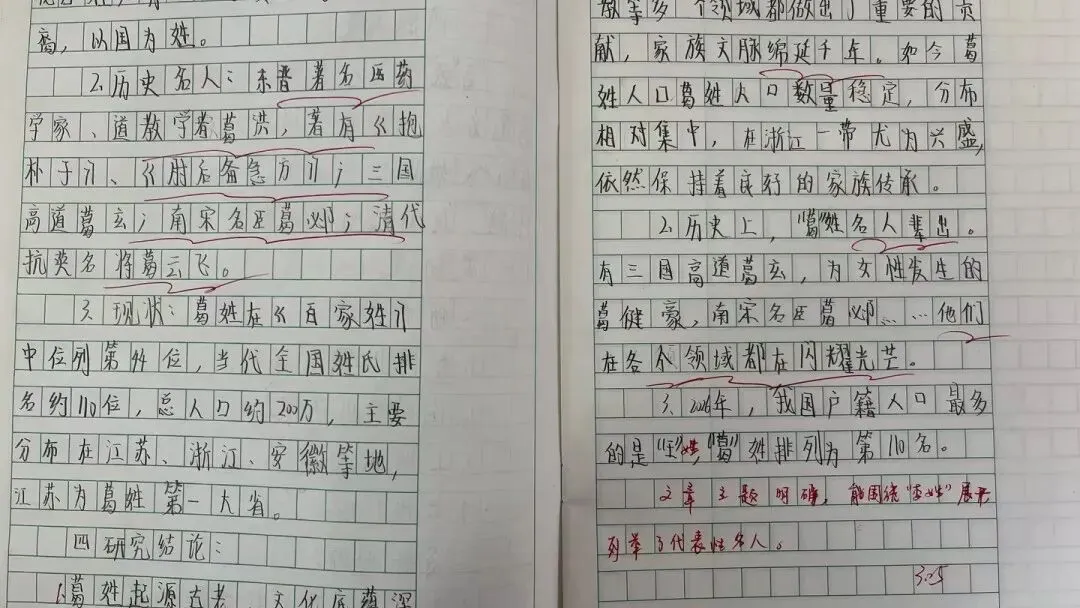 裔，以国为姓。
2.历史名人：东晋著名医药
学家、道教学者葛洪，著有《抱
朴子》、《肘后备急方》；三国
高道葛玄；南宋名臣葛邲；清代
抗英名将葛云飞。
3.现状：葛姓在《百家姓》
中位列第44位，当代全国姓氏排
名约110位，总人口约200万，主要
分布在江苏、浙江、安徽等地，
江苏为葛姓第一大省。
四研究结论：
1.葛姓起源古老，文化底蕴深
教等多个领域都做出了重要的贡
献，家族文脉绵延千年。如今葛
姓人口葛姓人口数量稳定，分布
相对集中，在浙江一带尤为兴盛，
依然保持着良好的家族传承。
2.历史上，"葛"姓名人辈出。
有三国高道葛玄，为女性发生的
葛健豪，南宋名臣葛邲……他们
在各个领域都在闪耀光芒。
3.2026年，我国户籍人口最多
的是"王"姓，"葛"姓排列为第110名。
文章主题明确，能围绕"查姓"展开
列举了代表性名人。
3.25